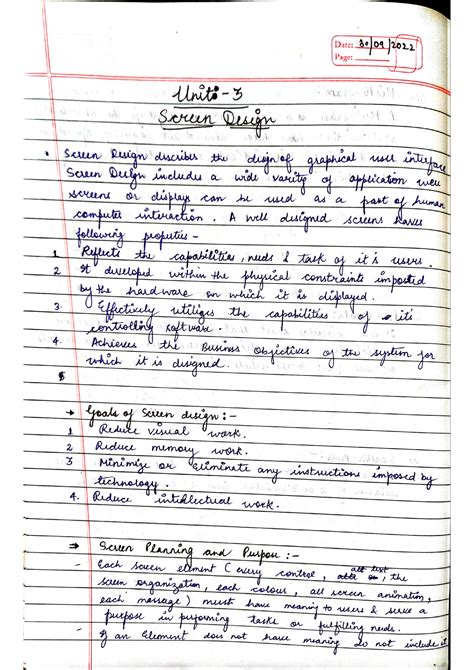 Date: 30/09/2022
Page:
Unit:-3
Screen Design
• Screen Design describes the design of graphical user interface
Screen Design includes a wide varity of application were
screens or displays can be used as a part of human
computer interaction. A well designed screens
following properties -
1 Reflects the capabilities, needs & task of it's users.
2 It developed within the physical constraints imposed
by the hardware on which it is displayed.
3. Effectively utilizes the capabilities of its
controlling software.
4. Achieves the Business Objectives of the system for
which it is designed.
→ Goals of Screen design:-
1 Reduce visual work.
2 Reduce memory work.
3 Minimize or Eliminate any instructions imposed by
technology.
4. Reduce intellectual work.
⇒ Screen Planning and Purpose :-
- Each screen element (every control, all text, the
screen organization, each colour, all screen animation,
each message) must have meaning to users & serve a
purpose in performing tasks or fulfilling needs.
- If an Element does not have meaning do not include it